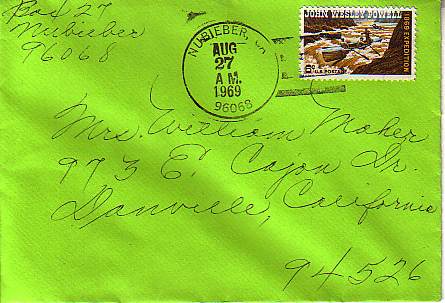 Box 27
Nubieber
96068
NUBIEBER, CA
AUG
27
A M.
1969
96068
JOHN WESLEY POWELL
1869 EXPEDITION
6¢ U.S. POSTAGE
Mrs. William Maher
973 El Cajon Dr.
Danville, California
94526